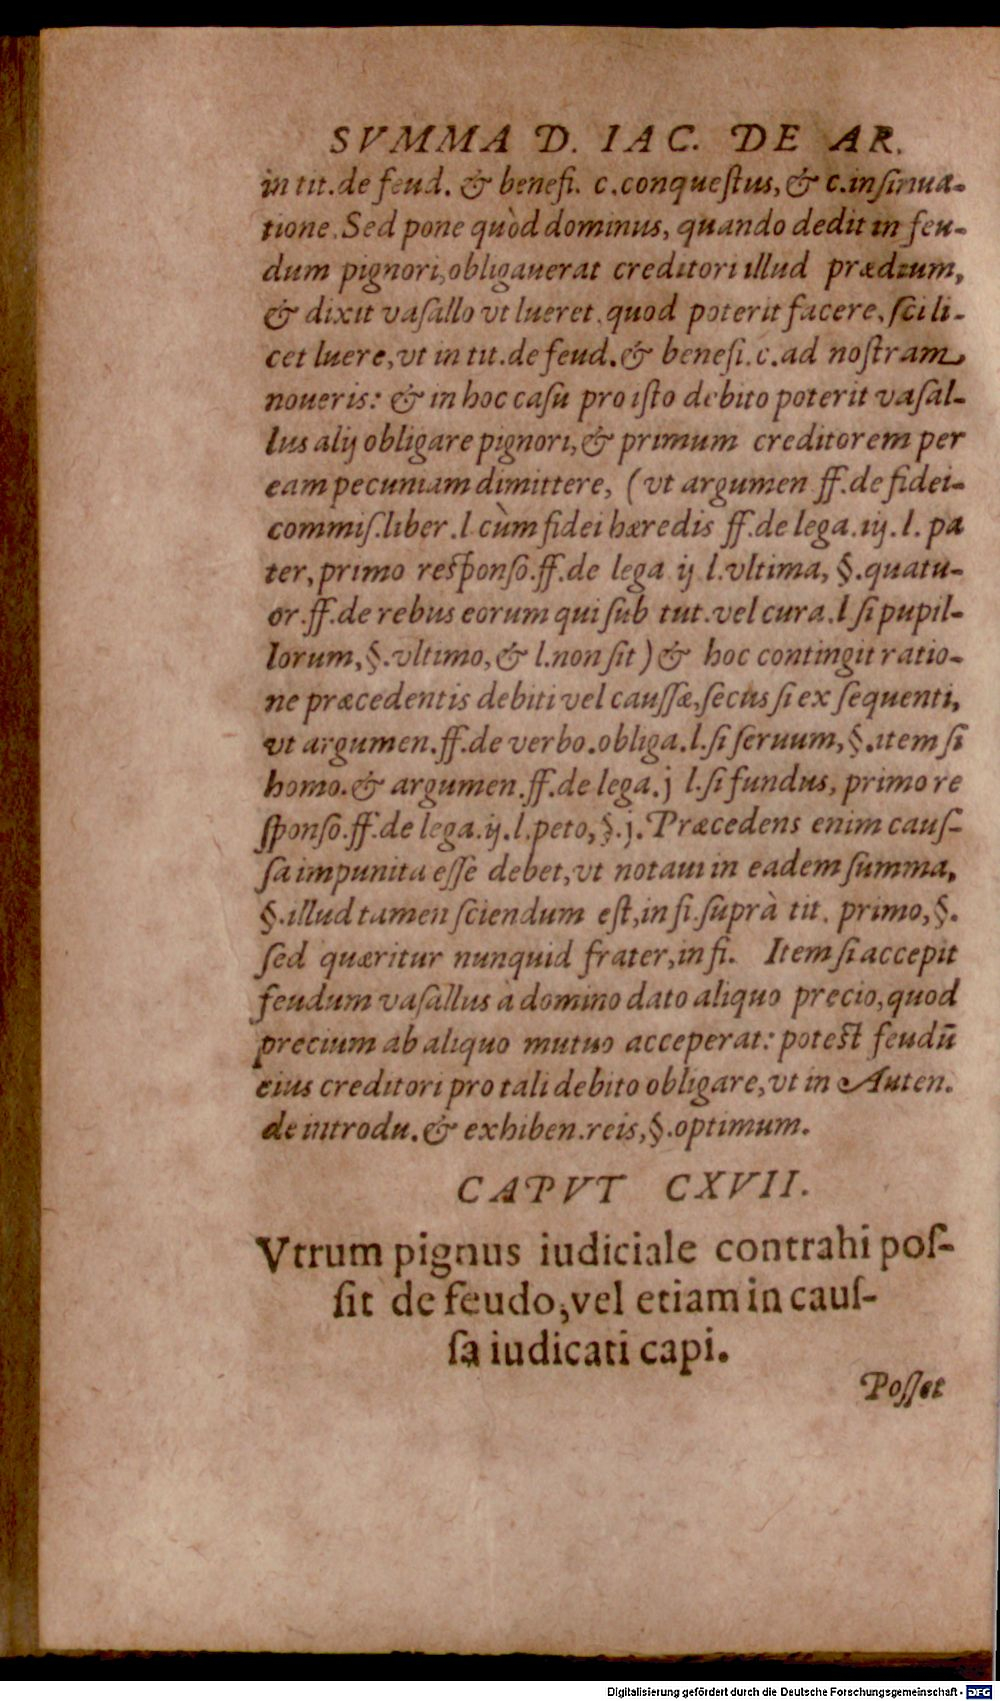 SVMMA D. IAC. DE AR.
in tit. de feud. & benefi. c. conquestus, & c. insinua-
tione. Sed pone quòd dominus, quando dedit in feu-
dum pignori, obligauerat creditori illud prædium,
& dixit vasallo vt lueret, quod poterit facere, scili-
cet luere, vt in tit. de feud. & benefi. c. ad nostram
noueris: & in hoc casu pro isto debito poterit vasal-
lus alij obligare pignori, & primum creditorem per
eam pecuniam dimittere, (vt argumen ff. de fidei-
commis. liber. l cùm fidei hæredis ff. de lega. iij. l. pa
ter, primo responso. ff. de lega ij l. vltima, §. quatu-
or. ff. de rebus eorum qui sub tut. vel cura. l si pupil-
lorum, §. vltimo, & l. non sit) & hoc contingit ratio-
ne præcedentis debiti vel caussæ, secus si ex sequenti,
vt argumen. ff. de verbo. obliga. l. si seruum, §. item si
homo. & argumen. ff. de lega. j l. si fundus, primo re
sponso. ff. de lega. ij. l. peto, §. j. Præcedens enim caus-
sa impunita esse debet, vt notaui in eadem summa,
§. illud tamen sciendum est, in fi. suprà tit. primo, §.
sed quæritur nunquid frater, in fi. Item si accepit
feudum vasallus à domino dato aliquo precio, quod
precium ab aliquo mutuo acceperat: potest feudū
eius creditori pro tali debito obligare, vt in Auten.
de introdu. & exhiben. reis, §. optimum.
CAPVT CXVII.
Vtrum pignus iudiciale contrahi pos-
sit de feudo, vel etiam in caus-
sa iudicati capi.
Posset
Digitalisierung gefördert durch die Deutsche Forschungsgemeinschaft - DFG